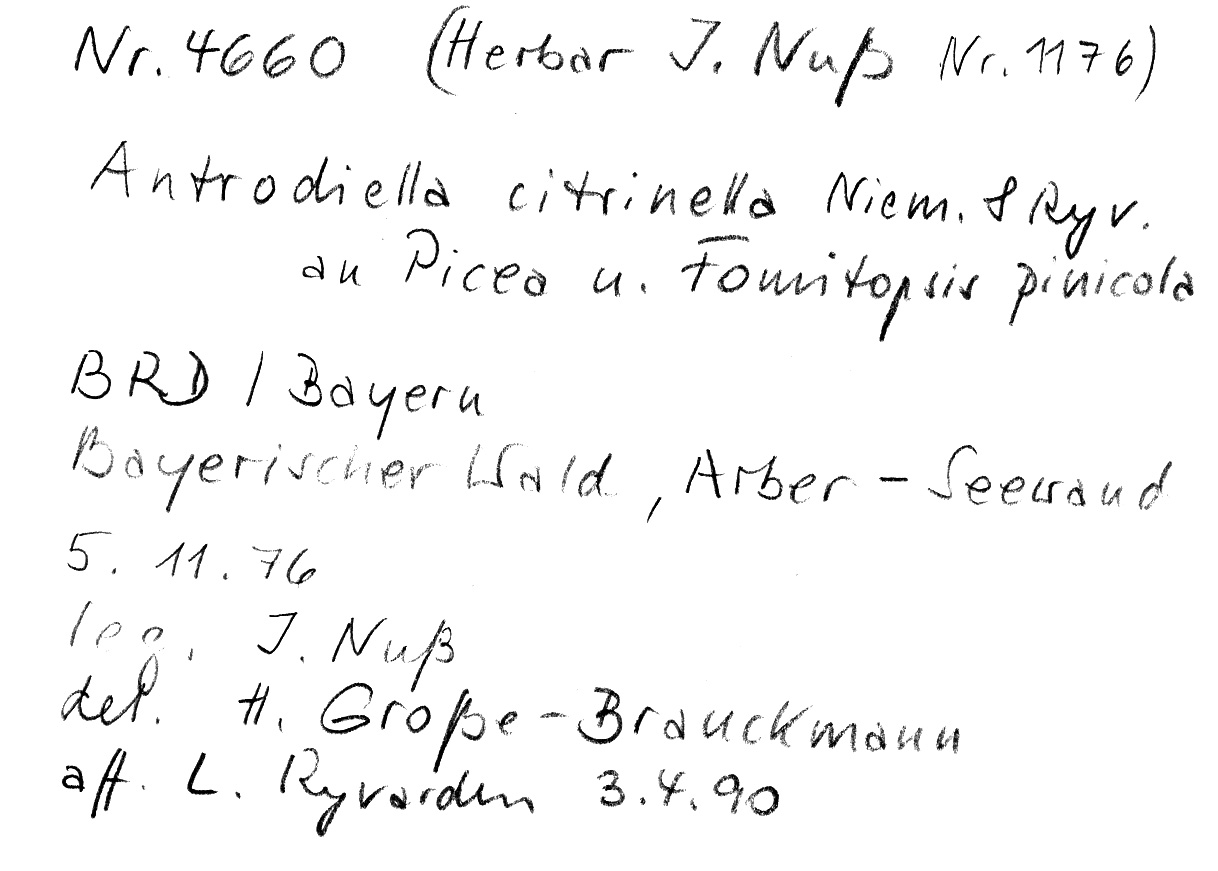 Nr. 4660 (Herbar J. Nuß Nr. 1176)
Antrodiella citrinella Niem. & Ryv.
an Picea u. Fomitopsis pinicola
BRD / Bayern
Bayerischer Wald, Arber - Seewand
5. 11. 76
leg. J. Nuß
det. H. Große-Brauckmann
aff. L. Ryvarden 3.4.90